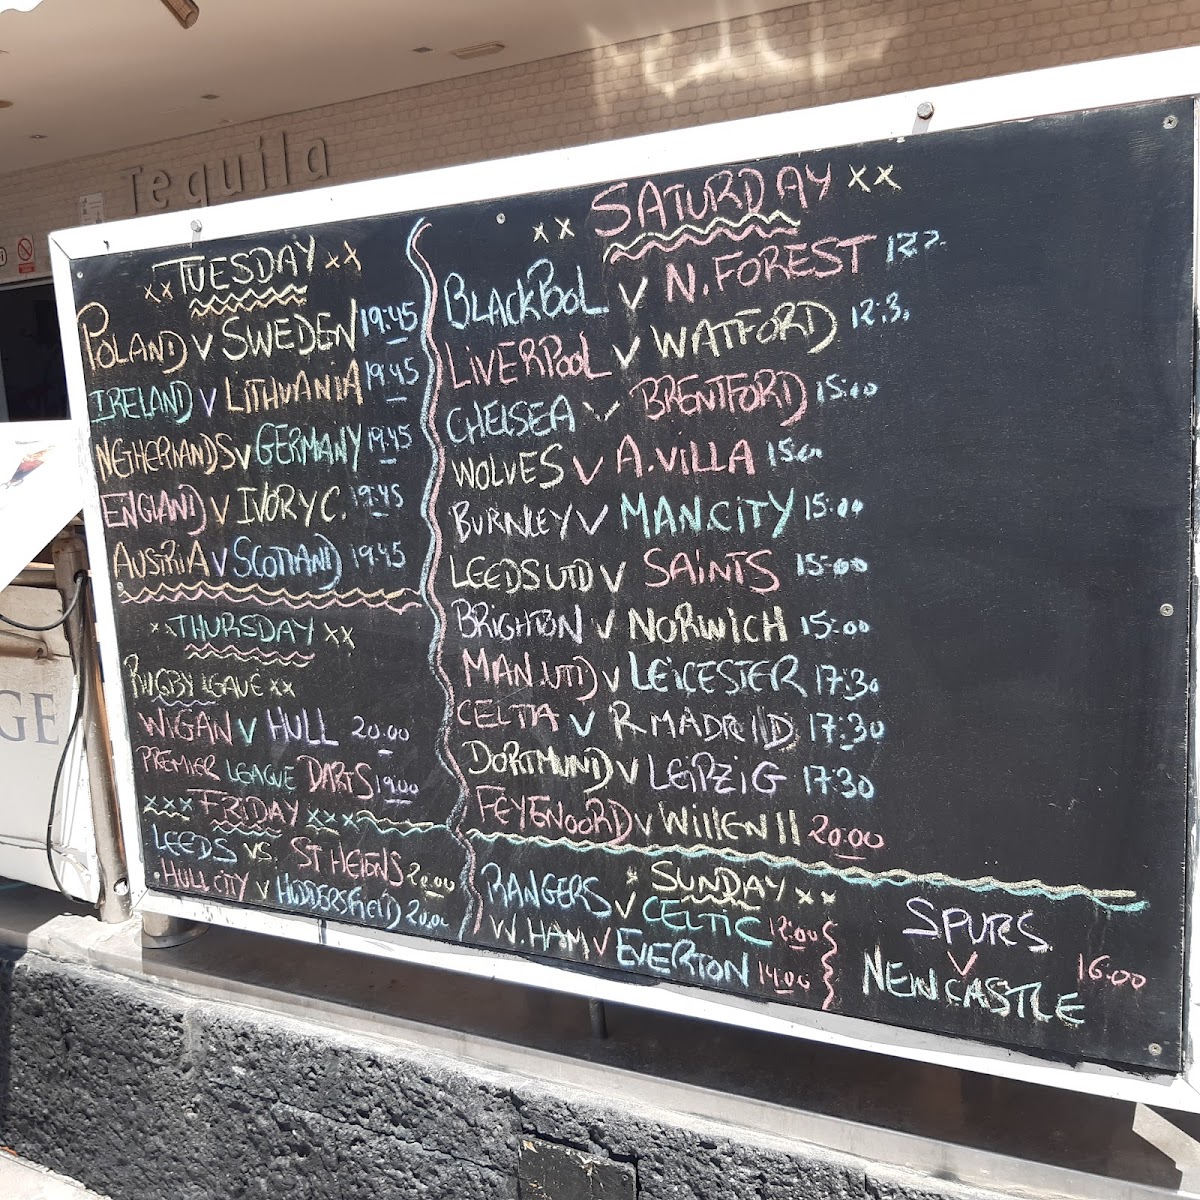 Tequila
xx TUESDAY xx
POLAND v SWEDEN 19:45
IRELAND v LITHUANIA 19:45
NETHERNANDS v GERMANY 19:45
ENGLAND v IVORY C. 19:45
AUSTRIA v SCOTLAND 19:45
xx THURSDAY xx
RUGBY LGAUE xx
WIGAN v HULL 20:00
PREMIER LEAGUE DARTS 19:00
xxx FRIDAY xxx
LEEDS vs. ST HELENS 20:00
HULL CITY v HUDDERSFIELD 20:00
xx SATURDAY xx
BLACKPOOL v N. FOREST
LIVERPOOL v WATFORD 12:3
CHELSEA v BRENTFORD 15:00
WOLVES v A. VILLA 15:00
BURNLEY v MAN.CITY 15:00
LEEDS UTD v SAINTS 15:00
BRIGHTON v NORWICH 15:00
MAN.UTD v LEICESTER 17:30
CELTA v R MADRID 17:30
DORTMUND v LEIPZIG 17:30
FEYENOORD v WILLEN II 20:00
x SUNDAY xx
RANGERS v CELTIC 12:00
W.HAM v EVERTON 14:00
SPURS
v
NEWCASTLE 16:00
GE